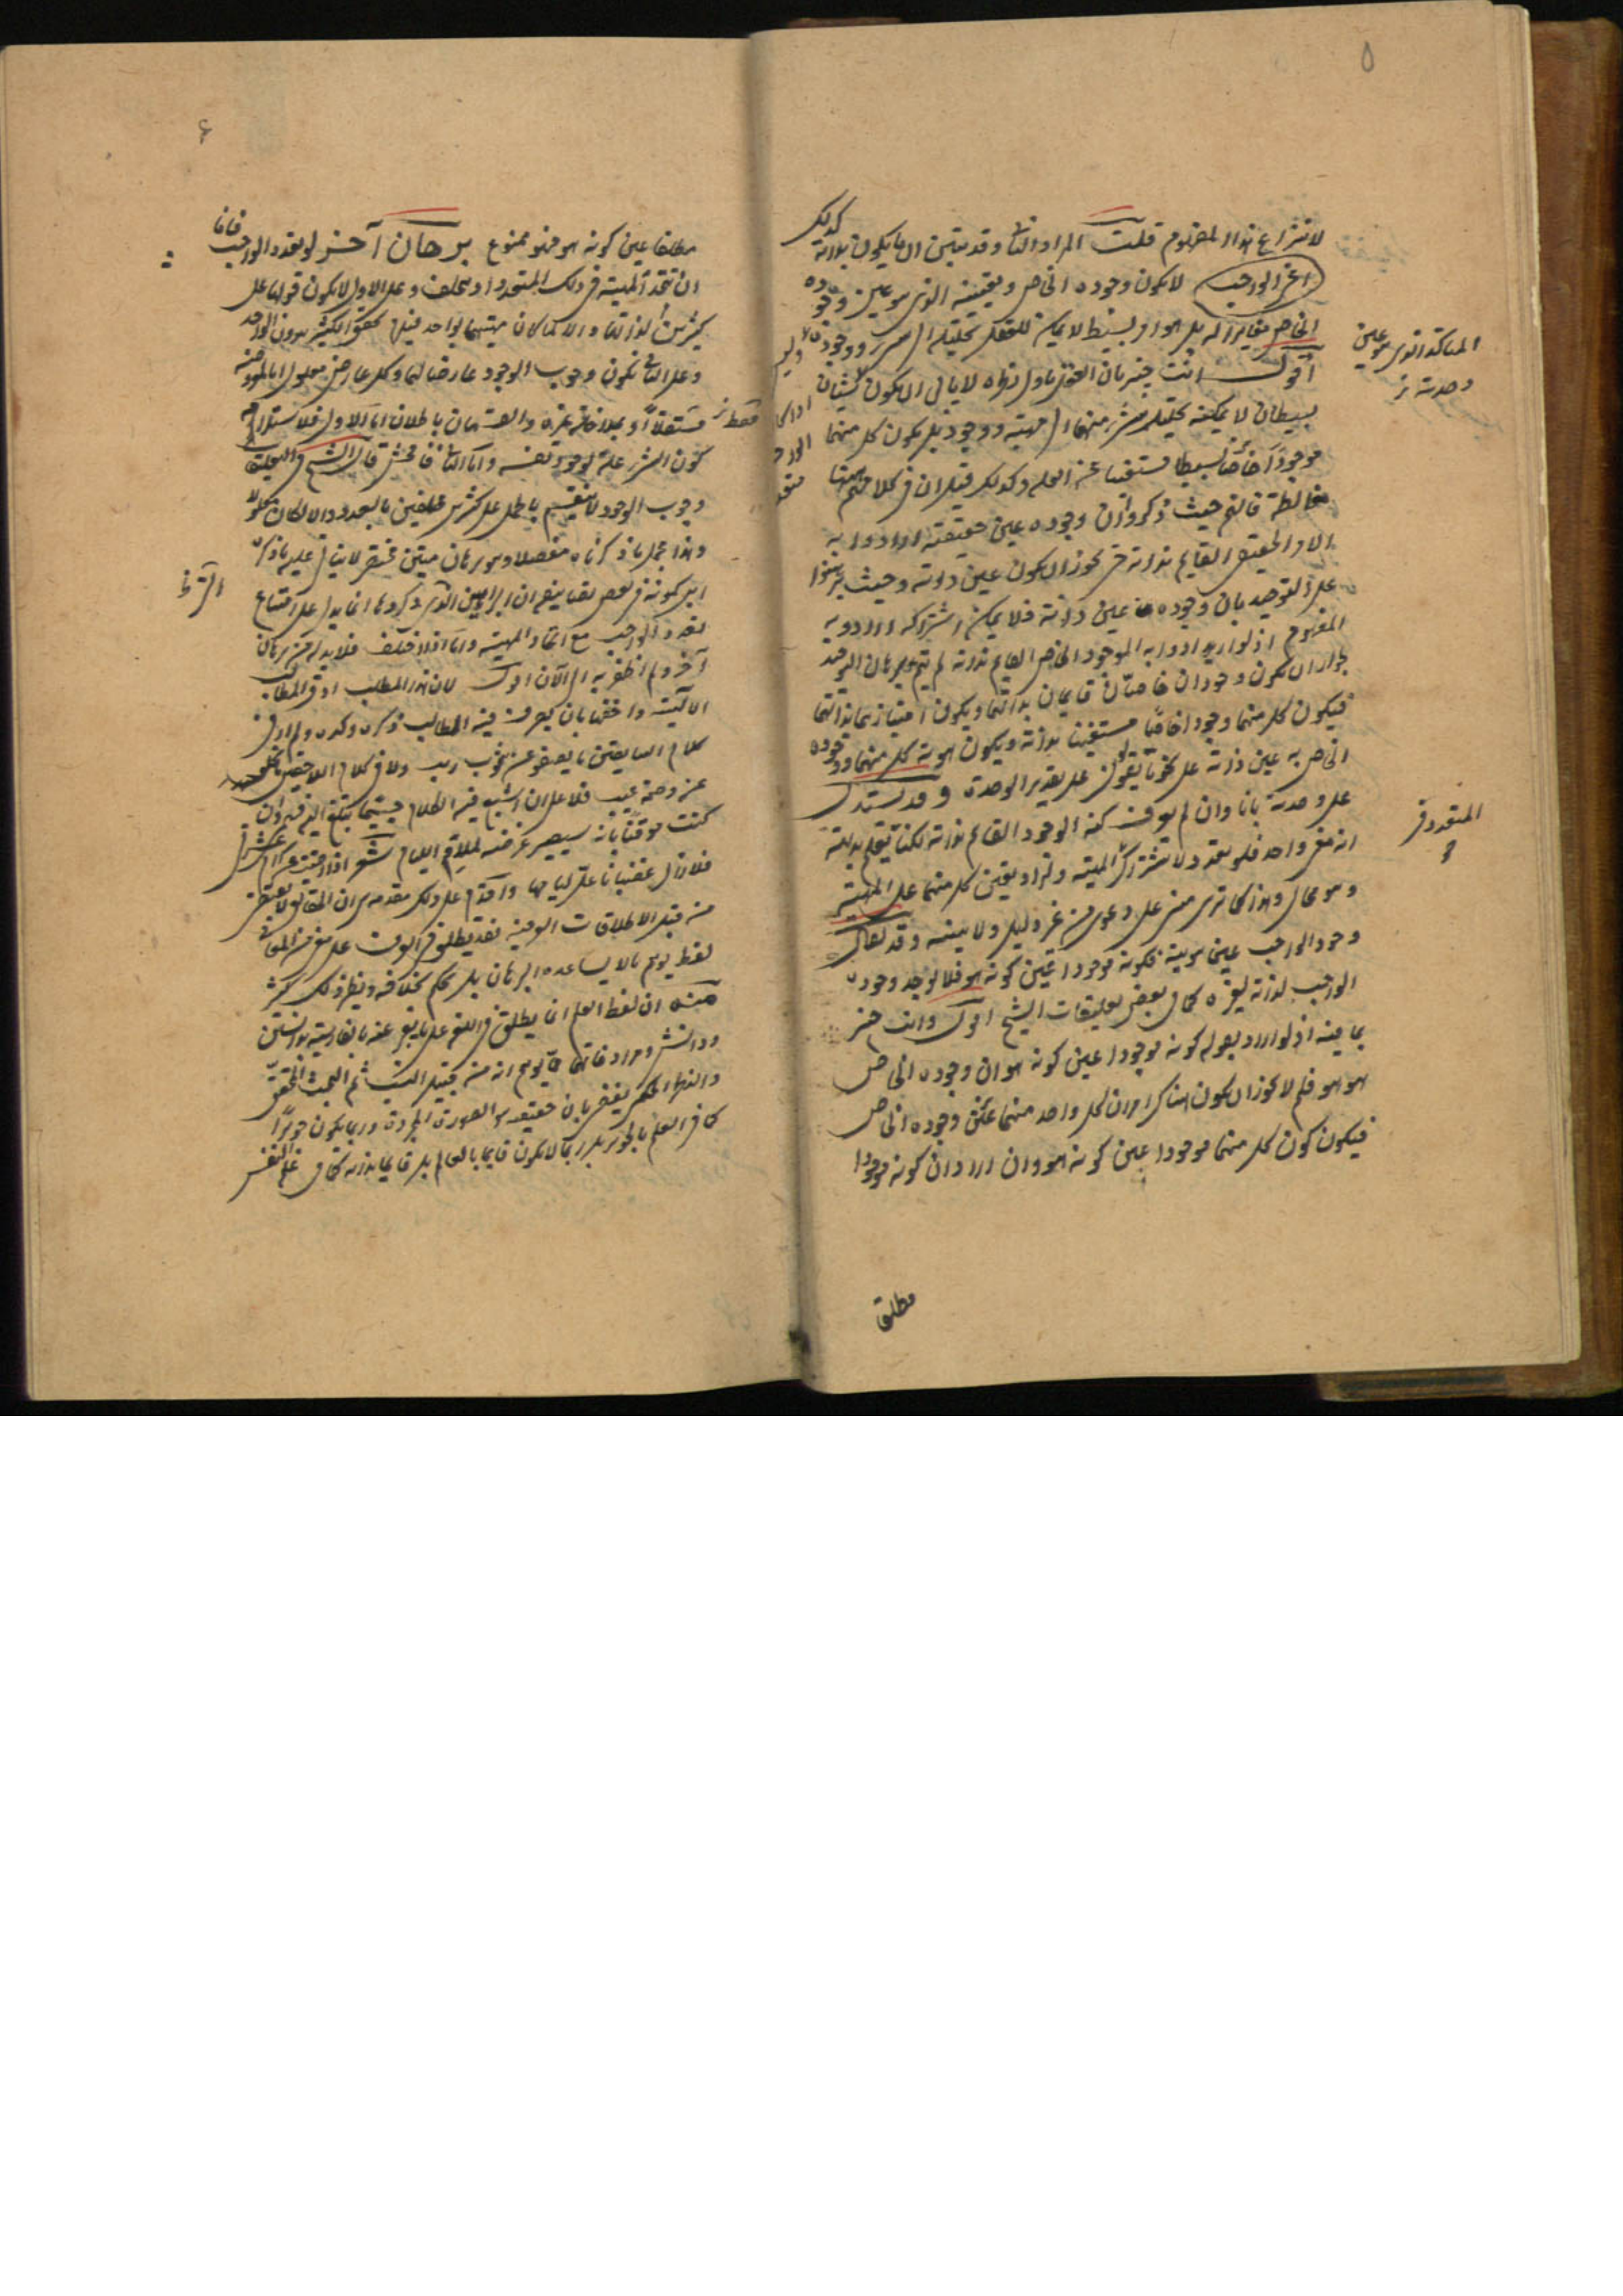 ٥
لانتزاع هذا المفهوم قلت المراد الثانى وقد يتبين ان ما يكون بذاته كذلك
اعنى الواجب لا يكون وجوده الخاص وتعينه الذى هو عين وجوده
الخاص مغايرا له بل هو امر بسيط لا يمكن للعقل تحليله الى ووجود
اقول انت خبير بان العقل باول نظره لا يابى ان يكون شيئان
بسيطان لا يمكنه تحليل شئ منهما الى مهية ووجود بل يكون كل منهما
موجودا خاصا بسيطا مستغنيا عن العلة وكذلك قيل ان فى كلامهم ههنا
مغالطة فانهم حيث ذكروا ان وجوده عين حقيقته ارادوا به
الامر الحقيقى القايم بذاته حتى يجوز ان يكون عين ذاته وحيث برهنوا
على التوحيد بان وجوده عين ذاته فلا يمكن اشتراكه ارادوا به
المفهوم اذ لو ارادوا به الموجود الخاص القايم بذاته لم يتم برهان التوحيد
جواز ان يكون وجودان خاصان قايمان بذاتهما ويكون امتيازهما بذاتهما
فيكون كل منهما وجودا خاصا مستغنيا بذاته ويكون هوية كل منهما ووجوده
الخاص به عين ذاته على نحو ما يقولون على تقدير الوحدة وقد يستدل
على وحدته بانا وان لم نعرف كنه الوجود القائم بذاته لكنا نعلم بديهة
انه معنى واحد فلو تعدد لاشتركا فى المهية ولزاد تعين كل منهما على المهية
وهو محال وهذا كما ترى مبنى على دعوى من غير دليل ولا بينة وقد يقال
وجود الواجب عين هويته فكونه موجودا عين كونه هو فلا يوجد وجود
الواجب لذاته لغيره كما فى بعض تعليقات الشيخ اقول وانت خبير
بما فيه اذ لو اراد بقوله كونه موجودا عين كونه هو ان وجوده الخاص
هو هو فلم لا يجوز ان يكون هناك امران لكل واحد منهما عين وجوده الخاص
فيكون كون كل منهما موجودا عين كونه هو وان اراد ان كونه موجودا
مطلقا
المتاكد الذى هو عين
وحدته
المتعدد فى
مطلقا عين كونه هو فهو ممنوع برهان آخر لو تعدد الواجب فاما
ان تتحد المهية فى ذلك المتعدد او يختلف وعلى الاول لا يكون قولها على
كثيرين لذاتها والا لما كان مهيتهما بواحد فيلزم تحقق الكثير بدون الواحد
وعلى الثانى يكون وجوب الوجود عارضا لهما وكل عارض معلول اما لمعروضه
فقط
او بمداخلة غيره والقسمان باطلان اما الاول فلاستلزامه
كون الشئ علة لوجود نفسه واما الثانى فافحش قال الشيخ فى التعليقات
وجوب الوجود لا ينقسم بالحمل على كثيرين مختلفين بالعدد والا لكان معلولا
وهذا مجمل ما ذكرناه مفصلا وهو برهان متين مختصر لا يتاتى عليه ما ذكره
ابن كمونة فى بعض تصانيفه ان البراهين التى ذكروها انما يدل على امتناع
تعدد الواجب مع اتحاد المهية واما اذا اختلف فلا بد له من برهان
آخر ولم اظفر به الى الآن اقول لان هذا المطلب ادق المطالب
الالهية واحقها بان يصرف فيه المطالب فكره وكده ولم ار فى
كلام السابقين ما يصفو عن شوب ريب ولا فى كلام اللاحقين ما يخلو
عن وصمة عيب فلا على ان اشبع فيه الكلام حسبما يبلغ اليه فهمى وان
كنت موقنا بانه سيصير عرضة لملام اللئام شعر اذا رضيت عنى كرام عشيرتى
فلا زال غضبانا على لئامها واقدم على ذلك مقدمة هى ان الحقائق لا تقتنص
من قبل الاطلاقات العرفية فقد يطلق فى العرف على معنى من المعانى
لفظ يوهم ما لا يساعده البرهان بل يحكم بخلافه ونظير ذلك كثير
منه ان لفظ العلم انما يطلق فى اللغة على ما يعبر عنه بالفارسية بدانستن
ودانش ومرادفاتهما مما يوهم انه من قبيل النسب ثم البحث المحقق
والنظر الحكمى يقضى بان حقيقته هو الصورة المجردة وربما يكون جوهرا
كما فى العلم بالجوهر بل ربما لا يكون قايما بالعالم بل قايما بذاته كما فى علم النفس